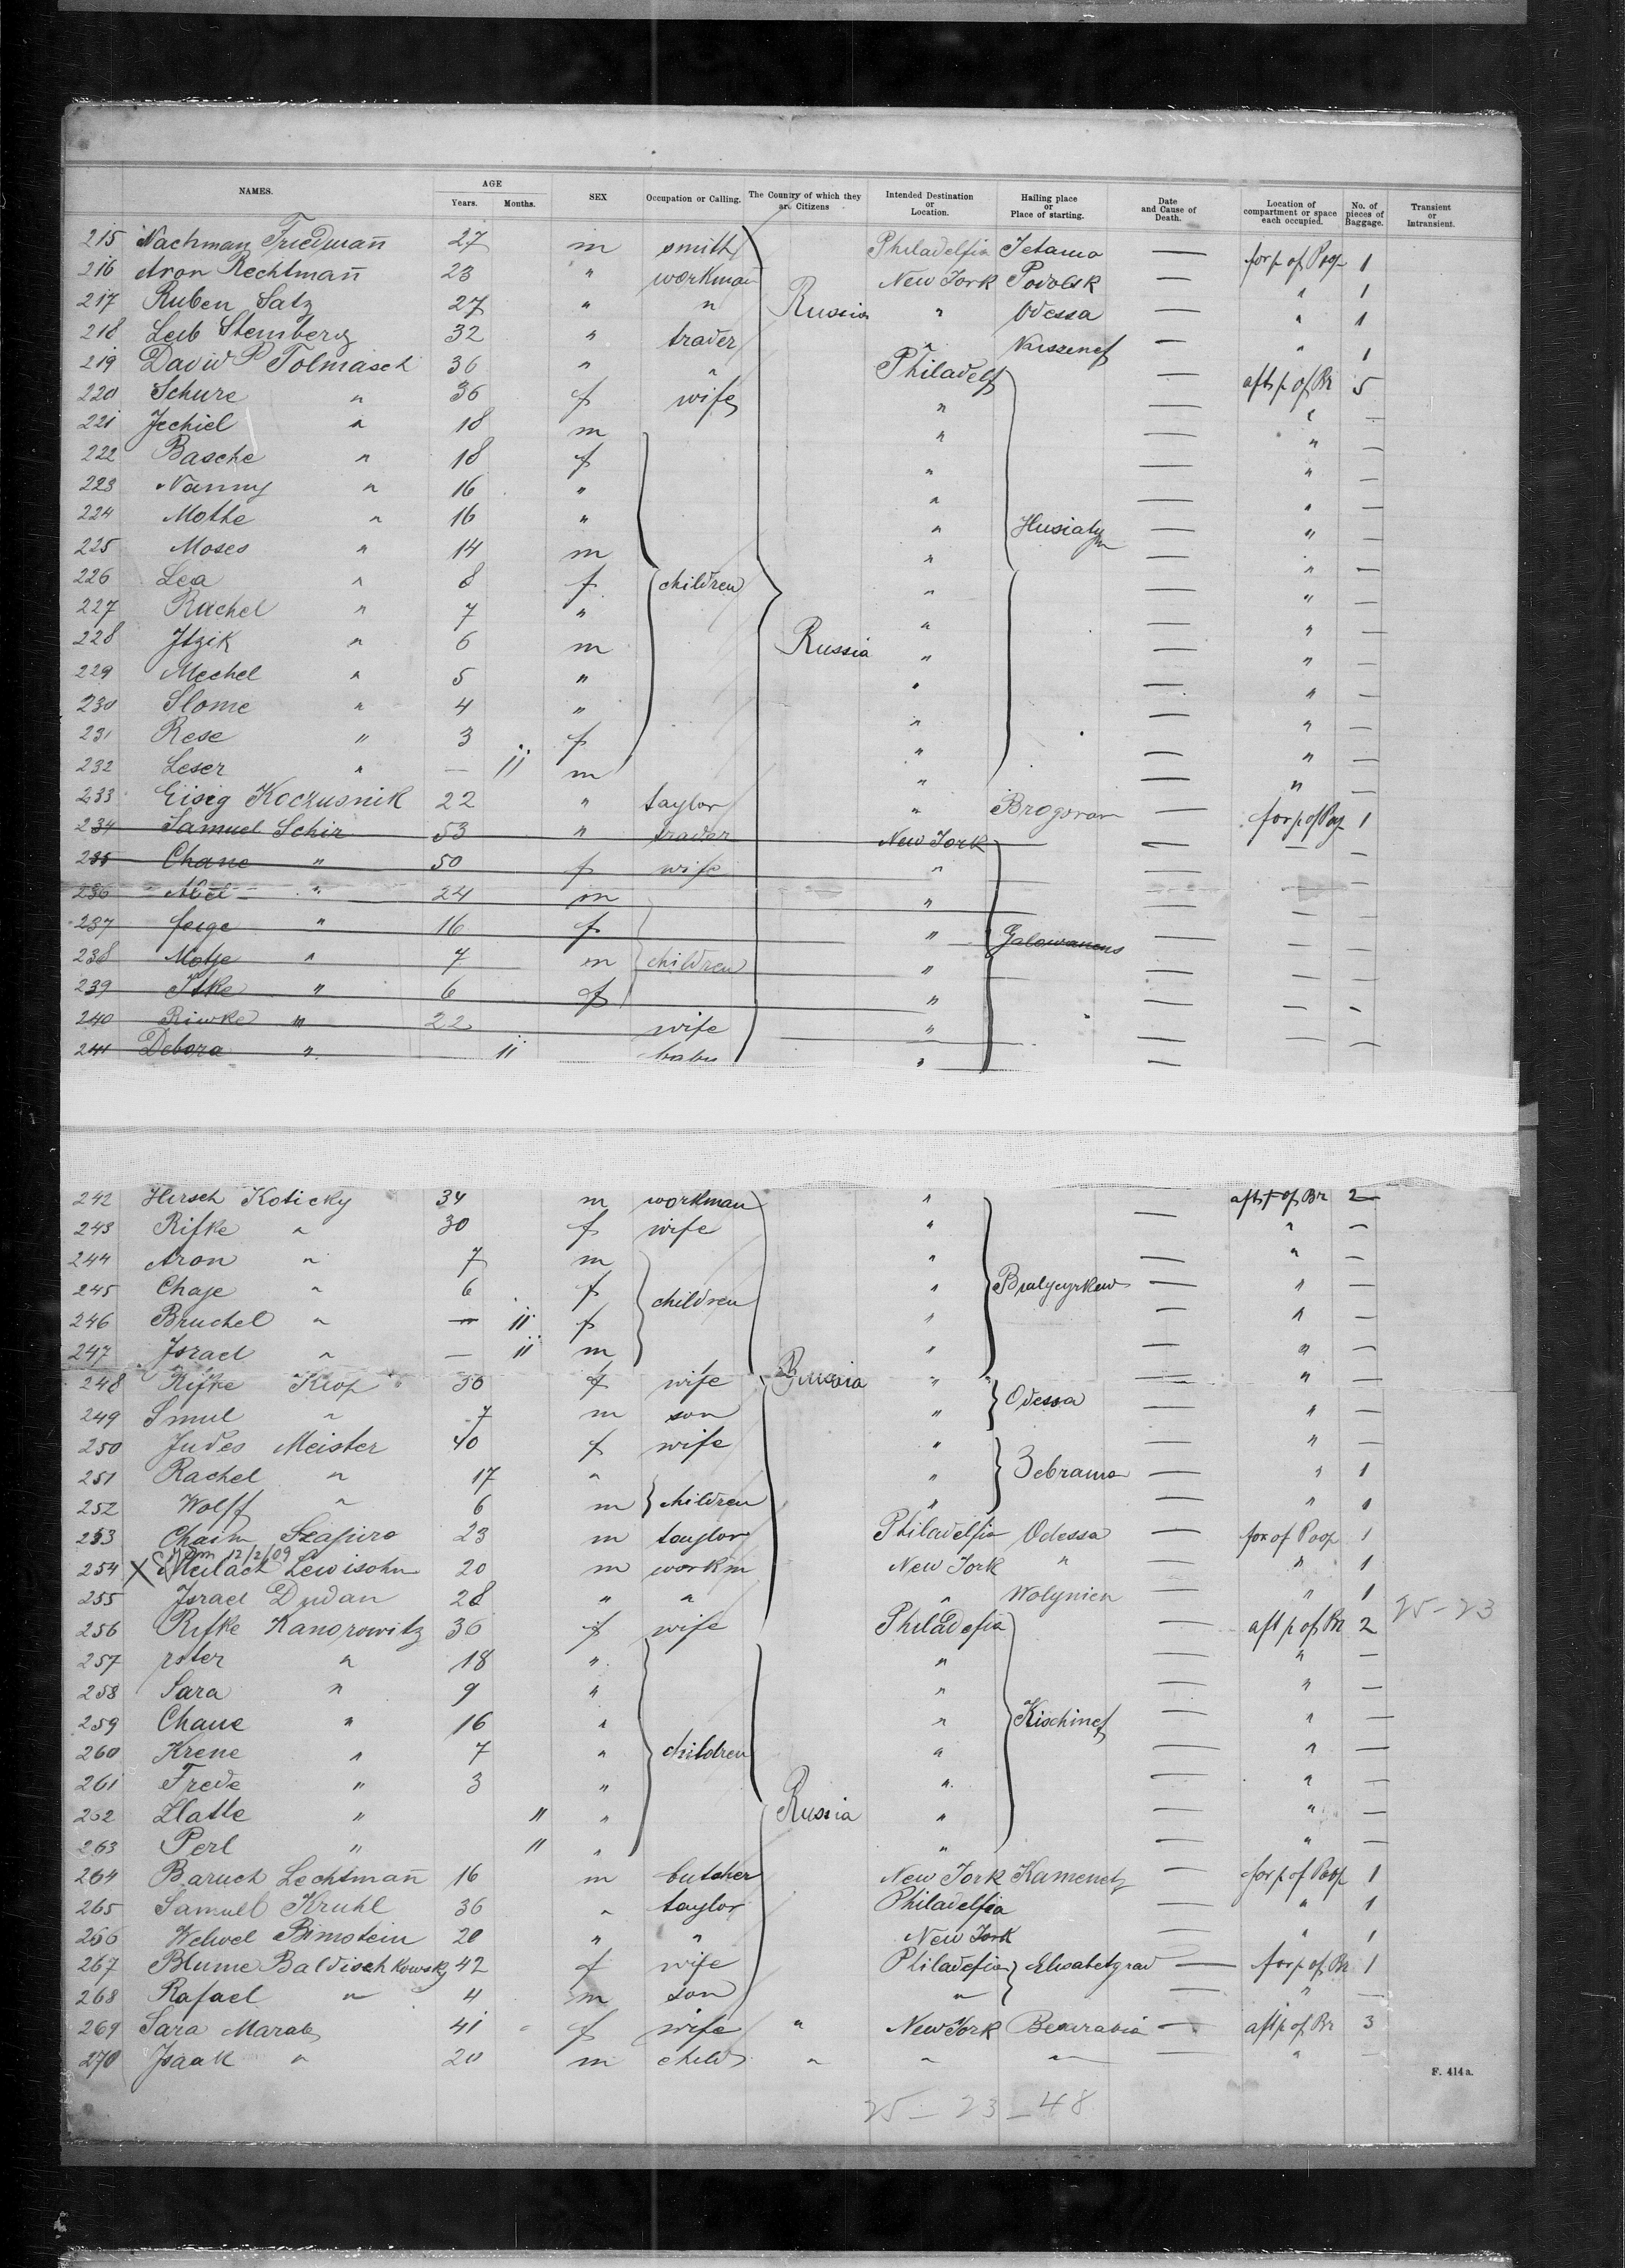 NAMES. AGE Years. Months. SEX Occupation or Calling. The Country of which they are Citizens Intended Destination or Location. Hailing place or Place of starting. Date and Cause of Death. Location of compartment or space each occupied. No. of pieces of Baggage. Transient or Intransient.
215 Nachman Friedmann 27 m smith Philadelfia Tetama — for p of Poop 1
216 Aron Rechtmann 23 " workman New York Podolsk — " 1
217 Ruben Satz 27 " " Russia " Odessa — " 1
218 Leib Sternberg 32 " trader " — " 1
219 David P Tolmasch 36 " " Philadelf — aft p of Br 5
220 Schure " 36 f wife " — " —
221 Jechiel " 18 m " — " —
222 Basche " 18 f " — " —
223 Nanny " 16 " " — " —
224 Mothe " 16 " " Husiatyn — " —
225 Moses " 14 m " — " —
226 Lea " 8 f children " — " —
227 Rachel " 7 " " — " —
228 Itzik " 6 m Russia " — " —
229 Mechel " 5 " " — " —
230 Slome " 4 " " — " —
231 Rese " 3 f " — " —
232 Leser " — 11 m " — " —
233 Eisig Koczusnik 22 " taylor " — for p of Poop 1
234 Samuel Schir 53 " trader New York — — —
235 Chane " 50 f wife " — — —
236 " 24 m " — — —
237 feige " 16 f " Galowanens — — —
238 Motje " 7 m children " — — —
239 Itke " 6 f " — — —
240 Riwke " 22 wife " — — —
241 Debora " 11 baby " —
242 Hersch Koticky 34 m workman " aft p of Br 2
243 Rifke " 30 f wife " — " —
244 Aron " 7 m " — " —
245 Chaje " 6 f children " Bialycyrkew — " —
246 Bruchel " — 11 f " — " —
247 Israel " — 11 m " — " —
248 Rifke Krop 30 f wife Russia " — " —
249 Smul " 7 m son " Odessa — " —
250 Judes Meister 40 f wife " — " —
251 Rachel " 17 " " Zebrama — " 1
252 Wolff " 6 m children " — " 1
253 Chaim Szapiro 23 m taylor Philadelfia Odessa — for of Poop 1
12/2/09
254 X Meilach Lewisohn 20 m workm New York " — " 1
255 Israel Dudan 28 " " " Wolynien — " 1
25-23
256 Rifke Kanorowitz 36 f wife Philadefia — aft p of Br 2
257 rster " 18 " " — " —
258 Sara " 9 " " — " —
259 Chane " 16 " " Kischinef — " —
260 Krene " 7 " children " — " —
261 Frede " 3 " " — " —
262 Zlatte " 11 " Russia " — " —
263 Perl " 11 " " — " —
264 Baruch Lechtmann 16 m butcher New York Kamenetz — for p of Poop 1
265 Samuel Kruhl 36 " taylor Philadelfia — " 1
266 Welwel Brnstein 20 " " New York — " 1
267 Blume Baldischkowsky 42 f wife Philadefia Elisabetgrad — for p of Br 1
268 Rafael " 4 m son " — " —
269 Sara Marak 41 - f wife " New York Bessarabia — aft p of Br 3
270 Isaak " 20 m child " " " — " —
F. 414a.
25-23-48